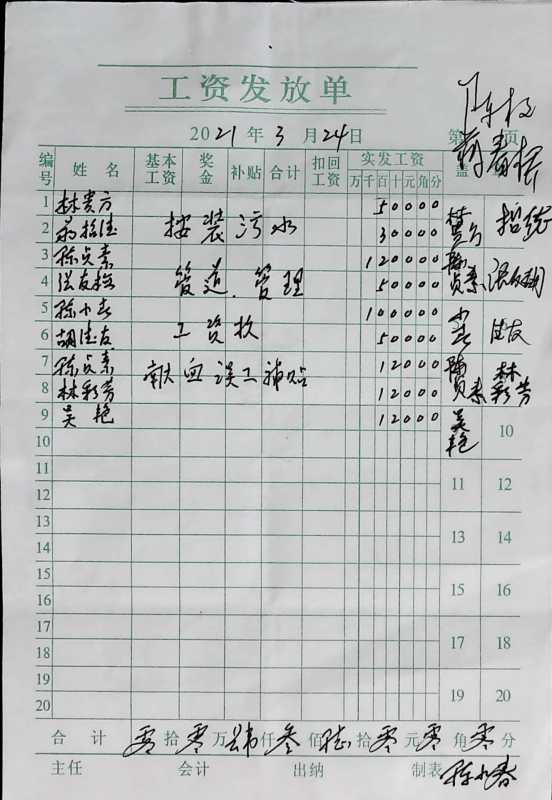 工资发放单
2021年3月24日 第 页
编号 姓名 基本工资 奖金 补贴 合计 扣回工资 实发工资 盖
万千百十元角分
1 林贵方 50000
2 招德 按装污水 30000
3 陈贞素 120000
4 张友 管道.管理 50000
5 陈小春 100000
6 胡德友 工资款 50000
7 陈贞素 献血误工补贴 12000
8 林彩芳 12000
9 吴艳 12000
吴艳
10 10
11 11 12
12
13 13 14
14
15 15 16
16
17 17 18
18
19 19 20
20
合计 零拾零万肆仟叁佰陆拾零元零角零分
主任 会计 出纳 制表 陈小春